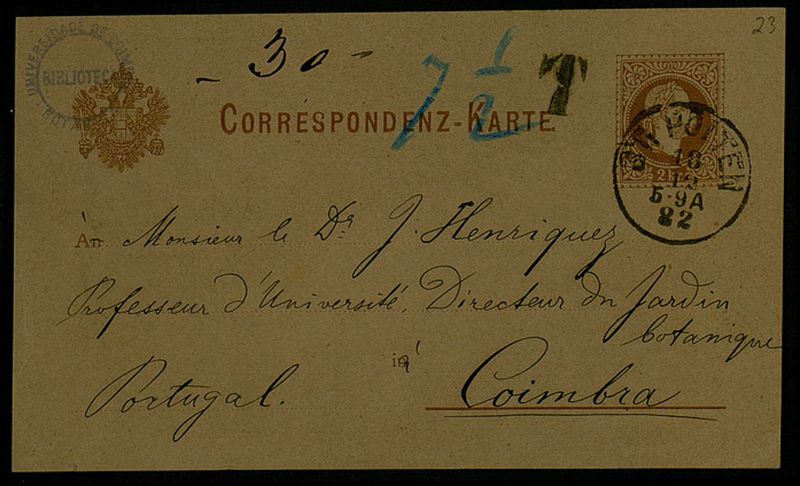 23
UNIVERSIDADE DE COIMBRA
BIBLIOTECA
- 30 -
7 1/2
T
CORRESPONDENZ-KARTE
2 Kr.
ST. PÖLTEN
18
12
5·9A
82
An Monsieur le Dr J. Henriquez
Professeur d'Université, Directeur du Jardin
botanique
in à
Portugal. Coimbra